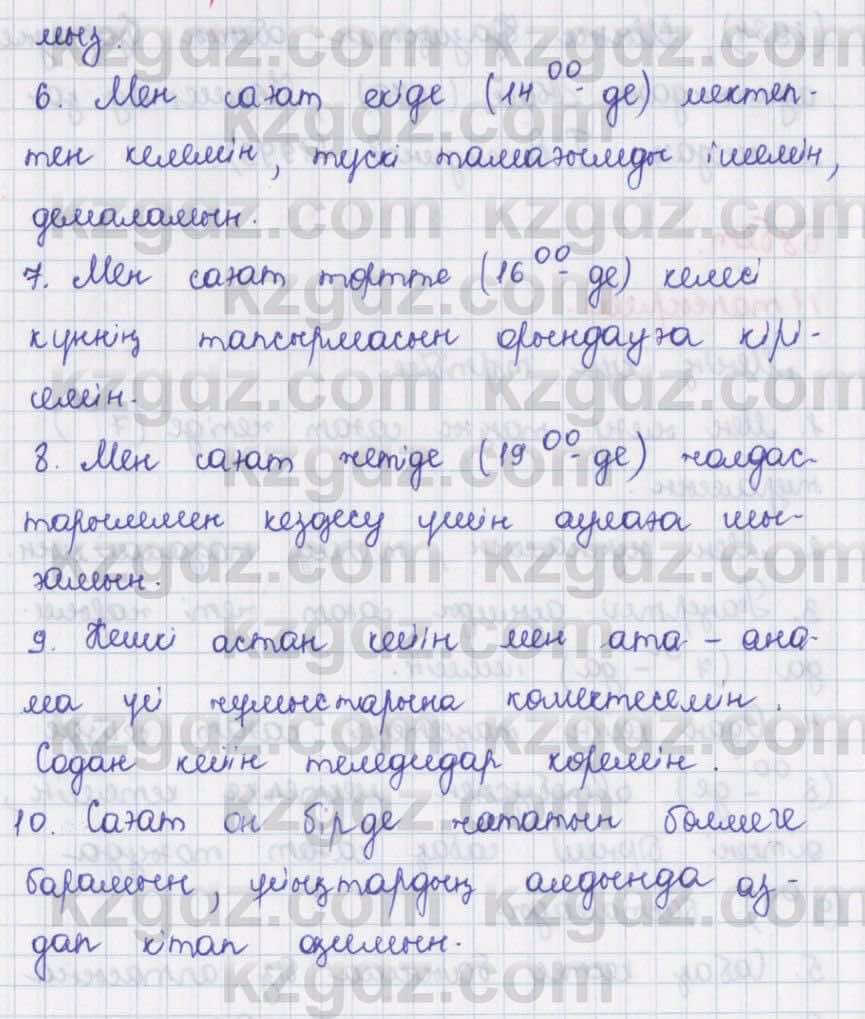 мыз.
6. Мен сағат екіде (14⁰⁰- де) мектеп-
тен келемін, түскі тамағымды ішемін,
демаламын.
7. Мен сағат төртте (16⁰⁰- де) келесі
күннің тапсырмасын орындауға кірі-
семін.
8. Мен сағат жетіде (19⁰⁰- де) жолдас-
тарыммен кездесу үшін аулаға шы-
ғамын.
9. Кешкі астан кейін мен ата - ана-
ма үй жұмыстарына көмектесемін.
Содан кейін теледидар көремін.
10. Сағат он бірде жататын бөлмеге
барамын, ұйықтардың алдында аз-
дап кітап оқимын.
kzgdz.com